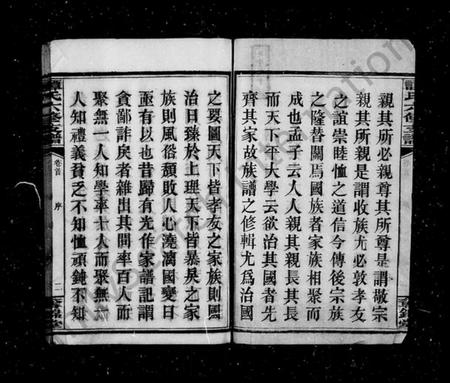 親其所必親尊其所尊是謂敬宗
親其所親是謂收族尤必敦孝友
之誼崇睦恤之道信今傳後宗族
之隆替關焉國族者家族相聚而
成也孟子云人人親其親長其長
而天下平大學云欲治其國者先
齊其家故族譜之修輯尤為治國
之要圖天下皆孝友之家族則國
治日臻於上理天下皆暴戾之家
族則風俗頹敗人心澆漓國變日
亟有以也昔歸有光作家譜記謂
貪鄙詐戾者雜出其間率百人而
聚無一人知學率十人而聚無一
人知禮義貧乏不知恤頑鈍不知
譚氏六修支譜
卷首
序
二